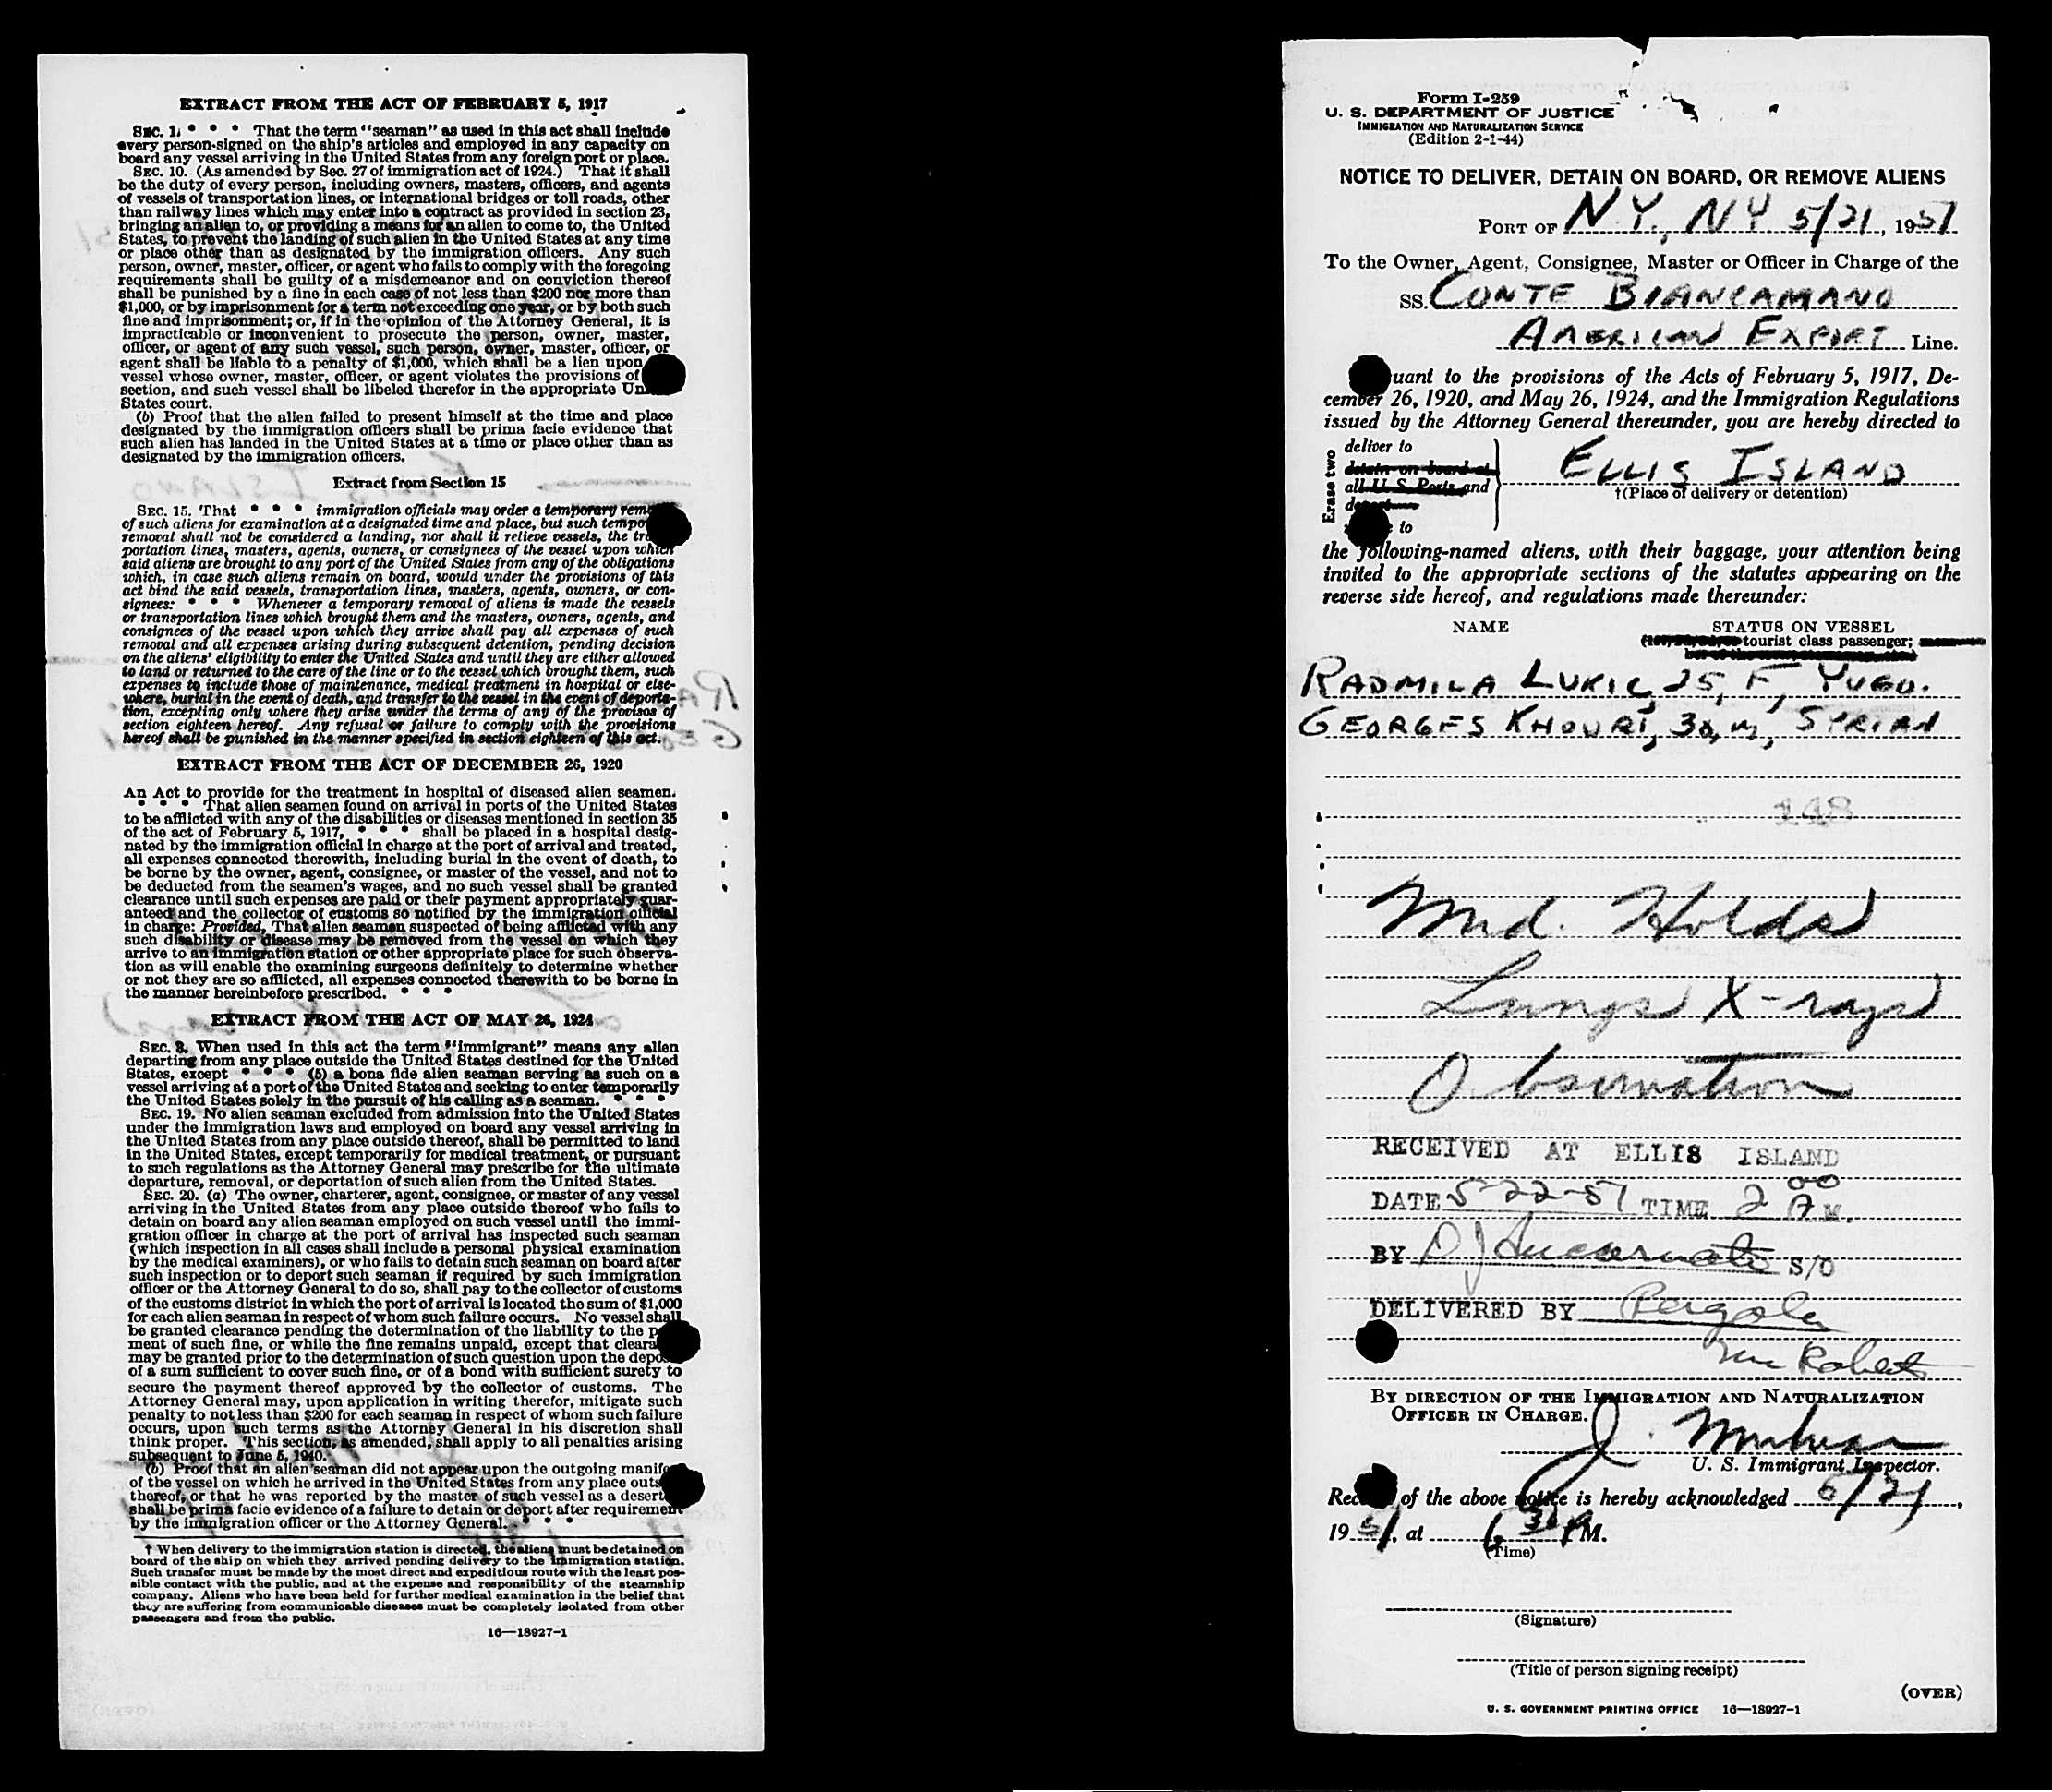 EXTRACT FROM THE ACT OF FEBRUARY 5, 1917
SEC. 1. * * * That the term "seaman" as used in this act shall include
every person signed on the ship's articles and employed in any capacity on
board any vessel arriving in the United States from any foreign port or place.
SEC. 10. (As amended by Sec. 27 of immigration act of 1924.) That it shall
be the duty of every person, including owners, masters, officers, and agents
of vessels of transportation lines, or international bridges or toll roads, other
than railway lines which may enter into a contract as provided in section 23,
bringing an alien to, or providing a means for an alien to come to, the United
States, to prevent the landing of such alien in the United States at any time
or place other than as designated by the immigration officers. Any such
person, owner, master, officer, or agent who fails to comply with the foregoing
requirements shall be guilty of a misdemeanor and on conviction thereof
shall be punished by a fine in each case of not less than $200 nor more than
$1,000, or by imprisonment for a term not exceeding one year, or by both such
fine and imprisonment; or, if in the opinion of the Attorney General, it is
impracticable or inconvenient to prosecute the person, owner, master,
officer, or agent of any such vessel, such person, owner, master, officer, or
agent shall be liable to a penalty of $1,000, which shall be a lien upon
vessel whose owner, master, officer, or agent violates the provisions of
section, and such vessel shall be libeled therefor in the appropriate Un
States court.
(b) Proof that the alien failed to present himself at the time and place
designated by the immigration officers shall be prima facie evidence that
such alien has landed in the United States at a time or place other than as
designated by the immigration officers.
Extract from Section 15
SEC. 15. That * * * immigration officials may order a temporary remo
of such aliens for examination at a designated time and place, but such tempo
removal shall not be considered a landing, nor shall it relieve vessels, the tra
portation lines, masters, agents, owners, or consignees of the vessel upon which
said aliens are brought to any port of the United States from any of the obligations
which, in case such aliens remain on board, would under the provisions of this
act bind the said vessels, transportation lines, masters, agents, owners, or con-
signees: * * * Whenever a temporary removal of aliens is made the vessels
or transportation lines which brought them and the masters, owners, agents, and
consignees of the vessel upon which they arrive shall pay all expenses of such
removal and all expenses arising during subsequent detention, pending decision
on the aliens' eligibility to enter the United States and until they are either allowed
to land or returned to the care of the line or to the vessel which brought them, such
expenses to include those of maintenance, medical treatment in hospital or else-
where, burial in the event of death, and transfer to the vessel in the event of deporta-
tion, excepting only where they arise under the terms of any of the provisos of
section eighteen hereof. Any refusal or failure to comply with the provisions
hereof shall be punished in the manner specified in section eighteen of this act.
EXTRACT FROM THE ACT OF DECEMBER 26, 1920
An Act to provide for the treatment in hospital of diseased alien seamen.
* * * That alien seamen found on arrival in ports of the United States
to be afflicted with any of the disabilities or diseases mentioned in section 35
of the act of February 5, 1917, * * * shall be placed in a hospital desig-
nated by the immigration official in charge at the port of arrival and treated,
all expenses connected therewith, including burial in the event of death, to
be borne by the owner, agent, consignee, or master of the vessel, and not to
be deducted from the seamen's wages, and no such vessel shall be granted
clearance until such expenses are paid or their payment appropriately guar-
anteed and the collector of customs so notified by the immigration official
in charge: Provided, That alien seamen suspected of being afflicted with any
such disability or disease may be removed from the vessel on which they
arrive to an immigration station or other appropriate place for such observa-
tion as will enable the examining surgeons definitely to determine whether
or not they are so afflicted, all expenses connected therewith to be borne in
the manner hereinbefore prescribed. * * *
EXTRACT FROM THE ACT OF MAY 26, 1924
SEC. 3. When used in this act the term "immigrant" means any alien
departing from any place outside the United States destined for the United
States, except * * * (5) a bona fide alien seaman serving as such on a
vessel arriving at a port of the United States and seeking to enter temporarily
the United States solely in the pursuit of his calling as a seaman. * * *
SEC. 19. No alien seaman excluded from admission into the United States
under the immigration laws and employed on board any vessel arriving in
the United States from any place outside thereof, shall be permitted to land
in the United States, except temporarily for medical treatment, or pursuant
to such regulations as the Attorney General may prescribe for the ultimate
departure, removal, or deportation of such alien from the United States.
SEC. 20. (a) The owner, charterer, agent, consignee, or master of any vessel
arriving in the United States from any place outside thereof who fails to
detain on board any alien seaman employed on such vessel until the immi-
gration officer in charge at the port of arrival has inspected such seaman
(which inspection in all cases shall include a personal physical examination
by the medical examiners), or who fails to detain such seaman on board after
such inspection or to deport such seaman if required by such immigration
officer or the Attorney General to do so, shall pay to the collector of customs
of the customs district in which the port of arrival is located the sum of $1,000
for each alien seaman in respect of whom such failure occurs. No vessel shall
be granted clearance pending the determination of the liability to the p
ment of such fine, or while the fine remains unpaid, except that cleara
may be granted prior to the determination of such question upon the depos
of a sum sufficient to cover such fine, or of a bond with sufficient surety to
secure the payment thereof approved by the collector of customs. The
Attorney General may, upon application in writing therefor, mitigate such
penalty to not less than $200 for each seaman in respect of whom such failure
occurs, upon such terms as the Attorney General in his discretion shall
think proper. This section, as amended, shall apply to all penalties arising
subsequent to June 5, 1940.
(b) Proof that an alien seaman did not appear upon the outgoing manife
of the vessel on which he arrived in the United States from any place outs
thereof, or that he was reported by the master of such vessel as a desert
shall be prima facie evidence of a failure to detain or deport after requirement
by the immigration officer or the Attorney General. * * *
† When delivery to the immigration station is directed, the aliens must be detained on
board of the ship on which they arrived pending delivery to the immigration station.
Such transfer must be made by the most direct and expeditious route with the least pos-
sible contact with the public, and at the expense and responsibility of the steamship
company. Aliens who have been held for further medical examination in the belief that
they are suffering from communicable diseases must be completely isolated from other
passengers and from the public.
16—18927-1
Form I-259
U. S. DEPARTMENT OF JUSTICE
IMMIGRATION AND NATURALIZATION SERVICE
(Edition 2-1-44)
NOTICE TO DELIVER, DETAIN ON BOARD, OR REMOVE ALIENS
PORT OF N.Y., NY 5/21, 1951
To the Owner, Agent, Consignee, Master or Officer in Charge of the
SS. CONTE BIANCAMANO
AMERICAN EXPORT Line.
uant to the provisions of the Acts of February 5, 1917, De-
cember 26, 1920, and May 26, 1924, and the Immigration Regulations
issued by the Attorney General thereunder, you are hereby directed to
Erase two
deliver to
detain on board at
all U. S. Ports and
to
ELLIS ISLAND
†(Place of delivery or detention)
the following-named aliens, with their baggage, your attention being
invited to the appropriate sections of the statutes appearing on the
reverse side hereof, and regulations made thereunder:
NAME STATUS ON VESSEL
tourist class passenger;
RADMILA LUKIC, 25, F, YUGO.
GEORGES KHOURI, 30, M, SYRIAN
148
Med. Holds
Lungs X-rays
Observation
RECEIVED AT ELLIS ISLAND
DATE 5-22-51 TIME 2 00 A M.
BY S/O
DELIVERED BY
BY DIRECTION OF THE IMMIGRATION AND NATURALIZATION
OFFICER IN CHARGE.
U. S. Immigrant Inspector.
Rec of the above notice is hereby acknowledged 5/21,
1951, at M.
(Time)
(Signature)
(Title of person signing receipt)
(OVER)
U. S. GOVERNMENT PRINTING OFFICE 16—18927-1